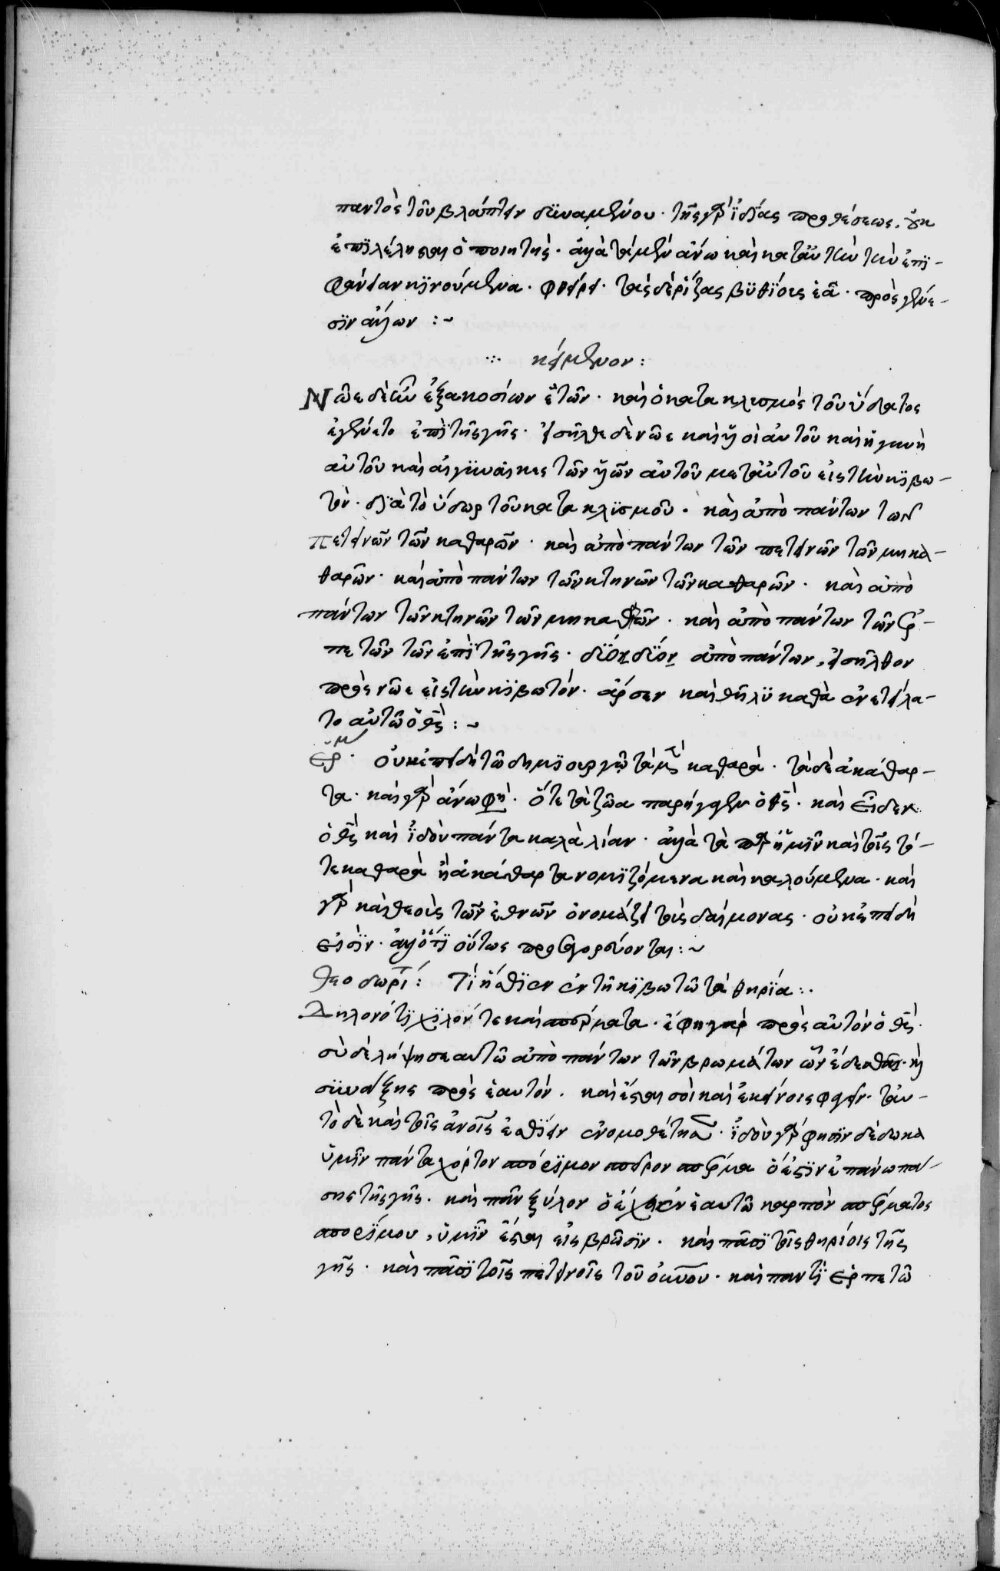 παντὸς τοῦ βλάπτειν δϋναμένου· τῆς γὰρ ἰδίας προθέσεως. οὐκ
ἐπιλέλησται ὁ ποιητής· ἀλλὰ τὰ μὲν ἄνω καὶ κατ' αὐτὴν τὴν ἐπϊ-
φάνειαν κϊνούμενα· φθείρει· τὰς δὲ ῥίζας βϋθίοις ἐᾶ· πρὸς γένε-
σϊν ἄλλων :~
κείμενον:
Νῶε δὲ ἦν ἑξακοσίων ἐτῶν· καὶ ὁ κατακλισμὸς τοῦ ὕδατος
ἐγένετο ἐπὶ τῆς γῆς· εἰσῆλθε δὲ νῶε καὶ οἱ υἱοὶ αὐτοῦ καὶ ἡ γυνὴ
αὐτοῦ καὶ αἱ γϋναίκες τῶν υἱῶν αὐτοῦ μετ' αὐτοῦ εἰς τὴν κϊβω-
τὸν· διὰ τὸ ὕδωρ τοῦ κατακλϊσμοῦ· καὶ ἀπὸ πάντων τῶν
πετεινῶν τῶν καθαρῶν· καὶ ἀπὸ πάντων τῶν πετεινῶν τῶν μὴ κα-
θαρῶν· καὶ ἀπὸ πάντων τῶν κτηνῶν τῶν καθαρῶν· καὶ ἀπὸ
πάντων τῶν κτηνῶν τῶν μὴ καθαρῶν· καὶ ἀπὸ πάντων τῶν ἑρ-
πετῶν τῶν ἐπὶ τῆς γῆς· δύο δύο ἀπὸ πάντων, εἰσῆλθον
πρὸς νῶε εἰς τὴν κϊβωτόν· ἄρσεν καὶ θῆλϋ καθὰ ἐνετείλα-
το αὐτῶ ὁ θς :~
οὐκ ἐπειδὴ τῶ δημϊουργῶ τὰ μὲν καθαρὰ· τὰ δὲ ἀκάθαρ-
τα· καὶ γὰρ ἄνω φησὶ· ὅτε τὰ ζῶα παρήγαγεν ὁ θς· καὶ εἶδεν
ὁ θς καὶ ἰδοὺ πάντα καλὰ λίαν· ἀλλὰ τὰ παρ' ἡμῖν καὶ τοῖς τό-
τε καθαρὰ ἢ ἀκάθαρτα νομϊζόμενα καὶ καλούμενα· καὶ
γὰρ καὶ θεοὺς τῶν ἐθνῶν ὀνομάζει τοὺς δαίμονας· οὐκ ἐπειδὴ
εἰσϊν· ἀλλ' ὅτι οὕτως προσαγορεύονται :~
θεοδωρί: Τί ἤσθϊεν ἐν τῆ κϊβωτῶ τὰ θηρία :·
Δηλονότι χϊλόν τε καὶ σπέρματα· ἔφη γὰρ πρὸς αὐτὸν ὁ θς·
σὺ δὲ λήψη σεαυτῶ ἀπὸ πάντων τῶν βρωμάτων ὧν ἔδεσθαι· καὶ
σϋνάξεις πρὸς ἑαυτόν· καὶ ἔσται σοὶ καὶ ἐκείνοις φαγεῖν· ταυ-
τὸ δὲ καὶ τοῖς ἀνοις ἐσθίειν ἐνομοθέτησεν· ἰδοὺ γὰρ φησϊν δέδωκα
ὑμῖν πάντα χόρτον σπόρϊμον σπεῖρον σπέρμα ὅ ἐστϊν ἐπάνω πά-
σης τῆς γῆς· καὶ πᾶν ξύλον ὃ ἔχει ἐν ἑαυτῶ καρπὸν σπέρματος
σπορίμου, ὑμῖν ἔσται εἰς βρῶσϊν· καὶ πᾶσϊ τοῖς θηρίοις τῆς
γῆς· καὶ πᾶσϊ τοῖς πετεινοῖς τοῦ οὐνου· καὶ παντὶ ἑρπετῶ